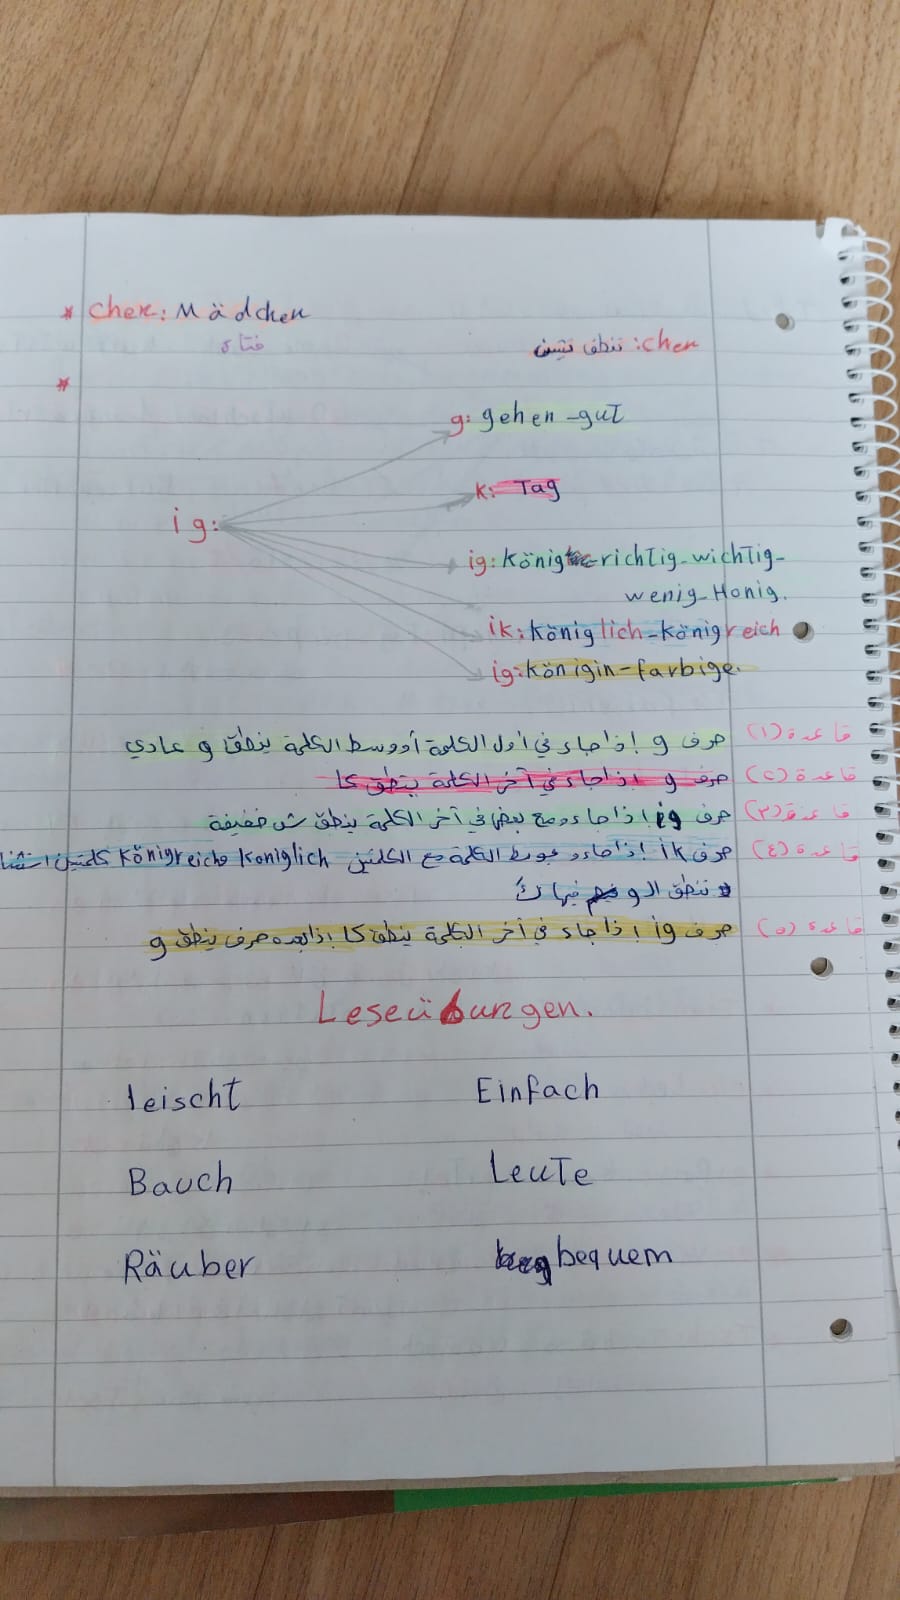 * chen: Mädchen
فتاة
chen: تنطق تشن
*
g: gehen - gut
k: Tag
ig:
ig: König richtig - wichtig -
wenig - Honig.
ik: königlich - königreich
ig: königin - farbige.
قاعدة (١) حرف g إذا جاء في أول الكلمة أو وسط الكلمة ينطق g عادي
قاعدة (٢) حرف g اذا جاء في آخر الكلمة ينطق كا
قاعدة (٣) حرف ig اذا جاء ومع بعض في آخر الكلمة ينطق ش خفيفة
قاعدة (٤) حرف ik اذا جاء الكلمة مع الكلمتين königlich königreich كلمتين
تنطق ال g فيها ك
قاعدة (٥) حرف ig إذا جاء في آخر الكلمة ينطق كا إذا بعده حرف ينطق g
Leseübungen.
leischt Einfach
Bauch Leute
Räuber bequem